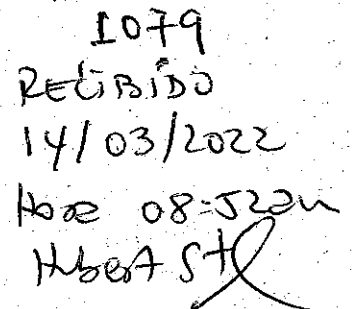 1079
RECIBIDO
14/03/2022
Hora 08:52am
Hubert St